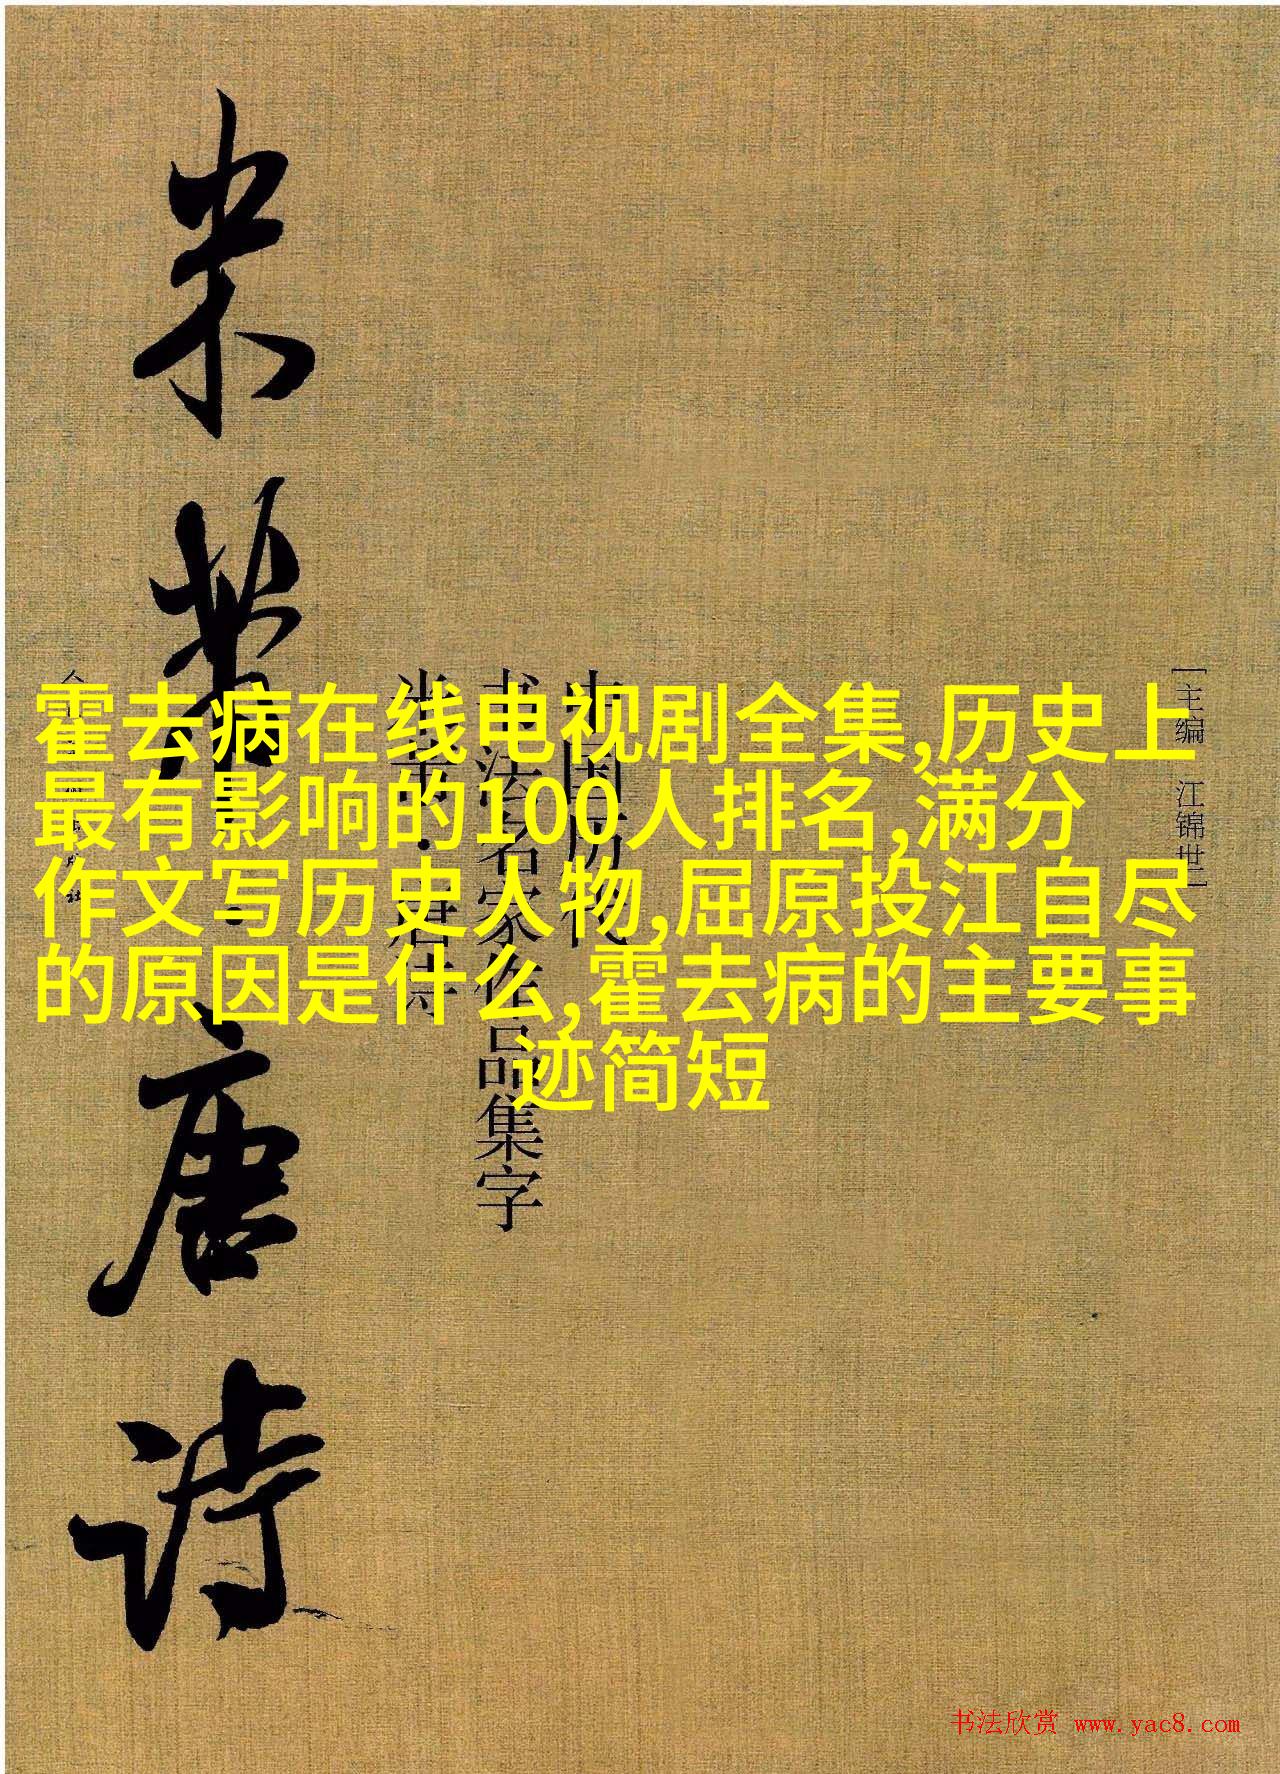 霍去病在线电视剧全集,历史上
最有影响的100人排名,满分
作文写历史人物,屈原投江自尽
的原因是什么,霍去病的主要事
迹简短
[主编 江锦世]
中国历代
书法名家作品集字
米芾·唐诗
米芾·唐诗
书法欣赏 www.yac8.com